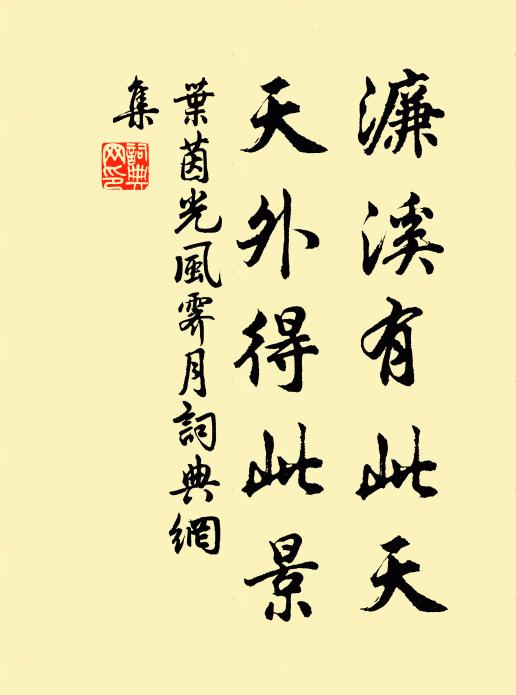 濂溪有此天
天外得此景
葉茵光風霽月詞典網
集
詞典
网印